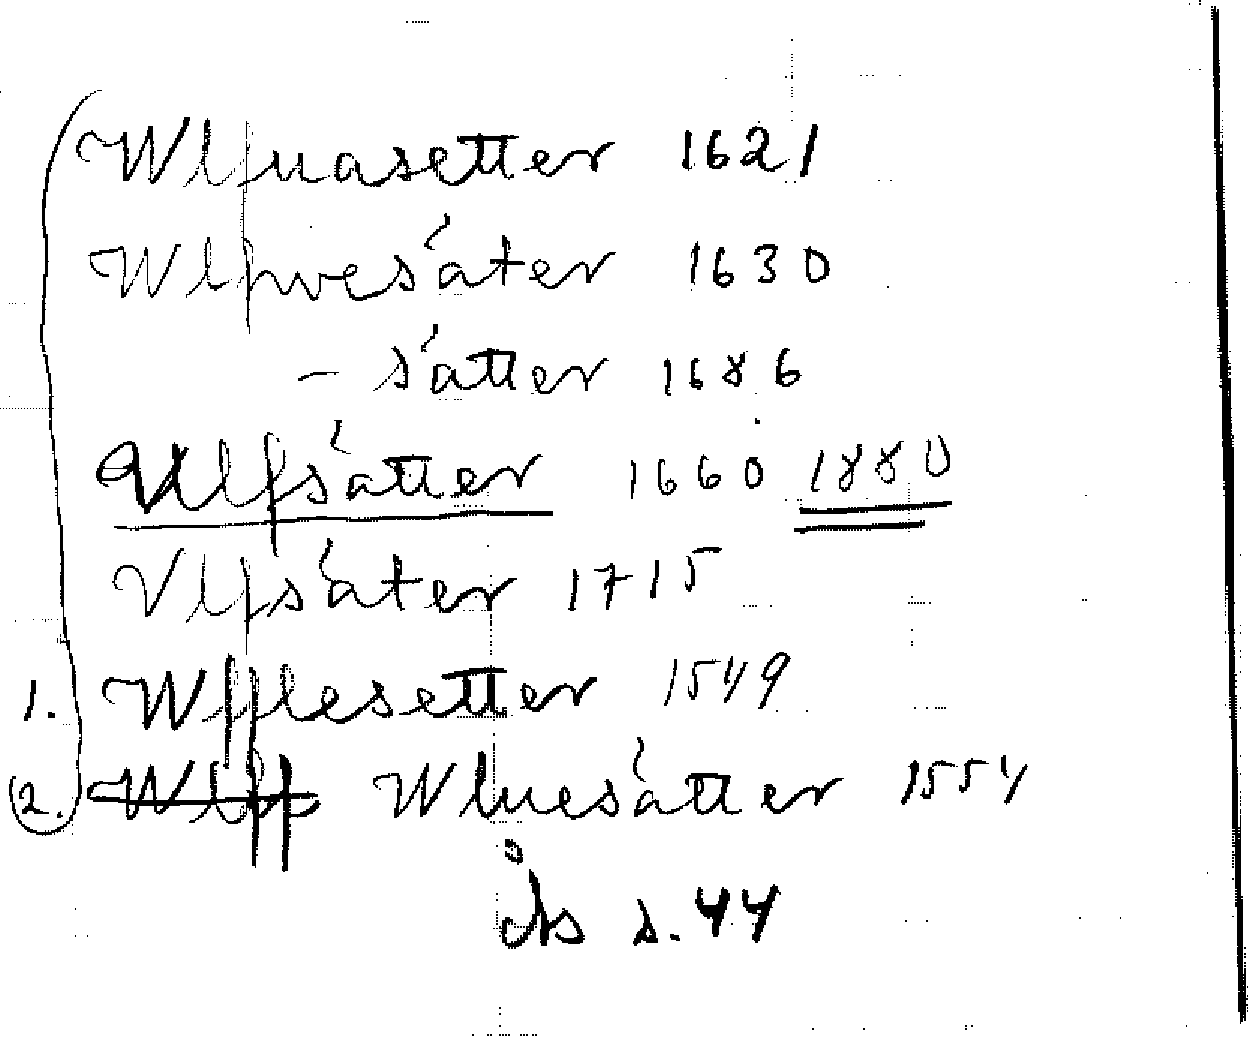 Wlfuasetter 1621
Wlfvesäter 1630
- sätter 1686
Ulfsätter 1660 1880
Vlfsäter 1715
1. Wfflesetter 1549
2. Wlff Wluesätter 1554
Ås s. 44